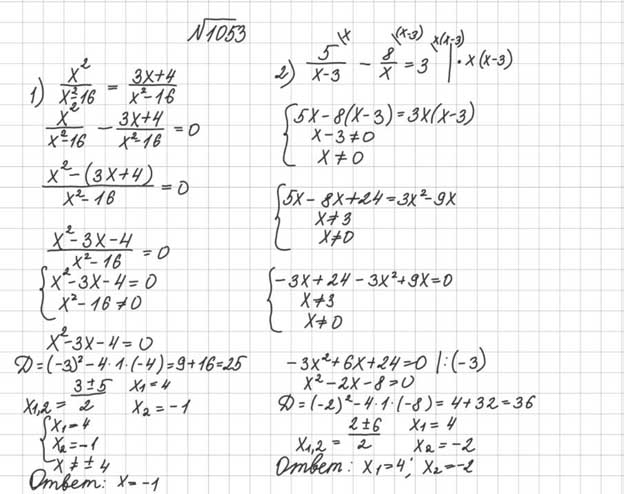 √1053
1) x²/(x²-16) = (3x+4)/(x²-16)
x²/(x²-16) - (3x+4)/(x²-16) = 0
(x²-(3x+4))/(x²-16) = 0
(x²-3x-4)/(x²-16) = 0
{x²-3x-4=0
x²-16≠0
x²-3x-4=0
D=(-3)²-4·1·(-4)=9+16=25
x₁,₂= (3±5)/2 x₁=4
x₂=-1
{x₁=4
x₂=-1
x≠±4
Ответ: x=-1
2) 5/(x-3) \x - 8/x \(x-3) = 3 \x(x-3) | ·x(x-3)
{5x-8(x-3)=3x(x-3)
x-3≠0
x≠0
{5x-8x+24=3x²-9x
x≠3
x≠0
{-3x+24-3x²+9x=0
x≠3
x≠0
-3x²+6x+24=0 |:(-3)
x²-2x-8=0
D=(-2)²-4·1·(-8)=4+32=36
x₁,₂= (2±6)/2 x₁=4
x₂=-2
Ответ: x₁=4; x₂=-2